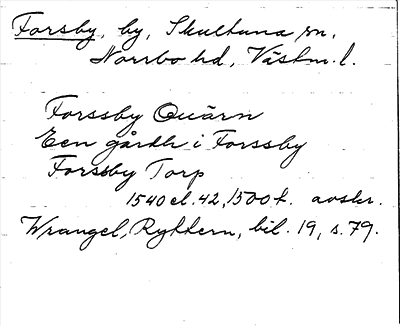 Forsby, by, Skultuna sn,
Norrbo hd, Västm. l.
Forssby Quärn
Een gårdh i Forssby
Forssby Torp
1540 el. 42, 1500 t. avskr.
Wrangel, Ryttern, bil. 19, s. 79.